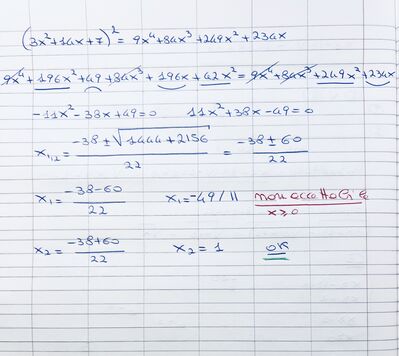 (3x²+14x+7)² = 9x⁴+84x³+249x²+234x
9x⁴+196x²+49+84x³+196x+42x² = 9x⁴+84x³+249x²+234x
-11x²-38x+49=0 11x²+38x-49=0
x₁,₂ = (-38±√(1444+2156))/22 = (-38±60)/22
x₁ = (-38-60)/22 x₁=-49/11 non accettabile
x≥0
x₂ = (-38+60)/22 x₂=1 OK